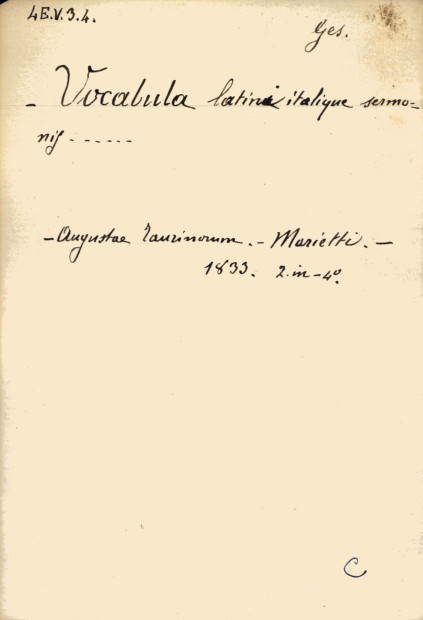 4E.V.3.4.
Ges.
- Vocabula latini italique sermo=
nis ------
- Augustae Taurinorum. - Marietti. -
1833. 2. in-4º.
C